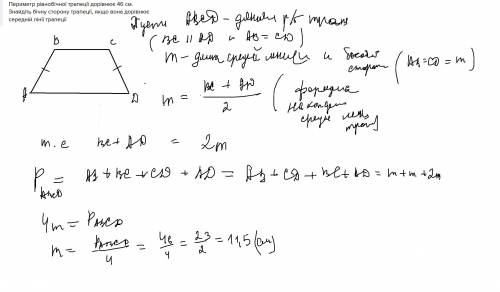 Периметр рівнобічної трапеції дорівнює 46 см.
Знайдіть бічну сторону трапеції, якщо вона дорівнює
середній лінії трапеції
Пусть ABCD - р/б трап
(BC || AD и AB = CD)
B C
A D
m - длина средней линии и боковая сторона (AB = CD = m)
m = BC + AD / 2 (формула нахождения средней линии трап)
т.е BC + AD = 2m
P ABCD = AB + BC + CD + AD = AB + CD + BC + AD = m + m + 2m
4m = P ABCD
m = P ABCD / 4 = 46 / 4 = 23 / 2 = 11,5 (см)